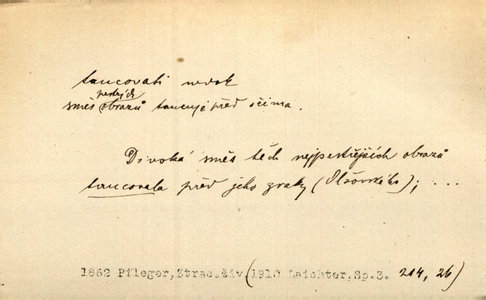 tancovati nedok
pestrých
směs obrazů tancuje před očima.
Divoká směs těch nejpestřejších obrazů
tancovala před jeho zraky (Olšovského); ...
1862 Pfleger, Ztrac.živ (1910 Laichter, Sp.3. 214, 26)